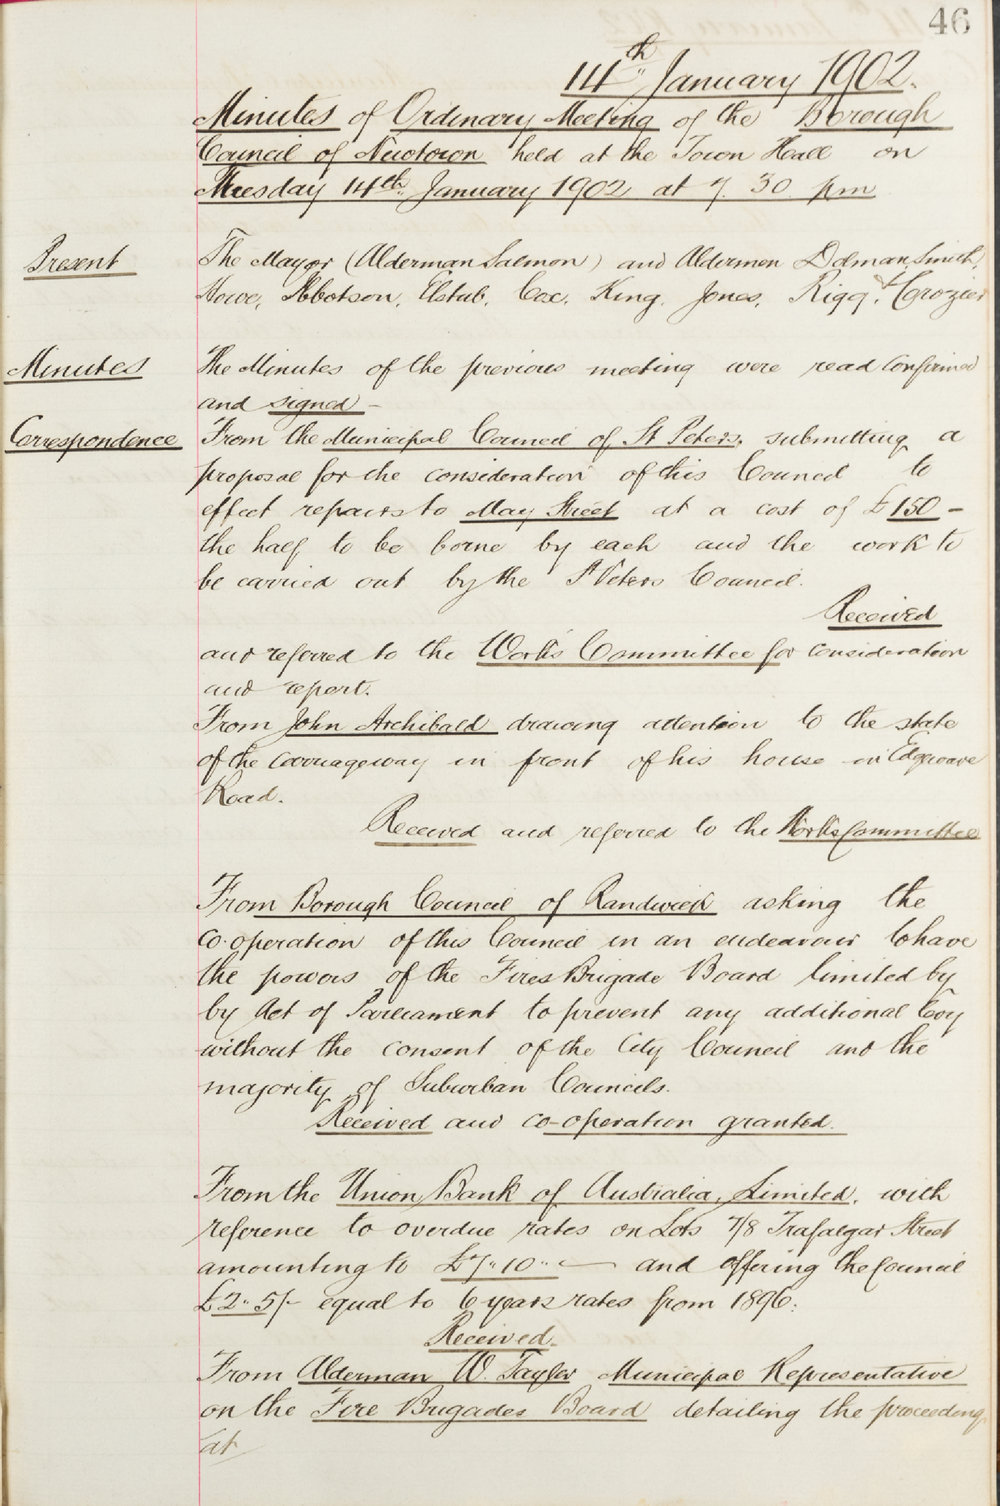 46
14th January 1902.
Minutes of Ordinary Meeting of the Borough
Council of Newtown held at the Town Hall on
Tuesday 14th January 1902 at 7.30 pm
Present
The Mayor (Alderman Salmon) and Aldermen Dolman, Smith,
Howe, Ibbotson, Elstub, Cox, King, Jones, Rigg, & Crozier
Minutes
The Minutes of the previous meeting were read confirmed
and signed -
Correspondence
From the Municipal Council of St Peters, submitting a
proposal for the consideration of this Council to
effect repairs to May Street at a cost of £150 -
the half to be borne by each and the work to
be carried out by the St Peters Council.
Received
and referred to the Works Committee for consideration
and report.
From John Archibald drawing attention to the state
of the carriageway in front of his house in Edgware
Road.
Received and referred to the Works Committee
From Borough Council of Randwick asking the
co-operation of this Council in an endeavour to have
the powers of the Fires Brigade Board limited by
by Act of Parliament to prevent any additional levy
without the consent of the City Council and the
majority of Suburban Councils.
Received and co-operation granted.
From the Union Bank of Australia, Limited, with
reference to overdue rates on Lots 7/8 Trafalgar Street
amounting to £7"10"- and offering the Council
£2"5/- equal to 6 years rates from 1896.
Received.
From Alderman W. Taylor Municipal Representative
on the Fire Brigades Board detailing the proceedings
at